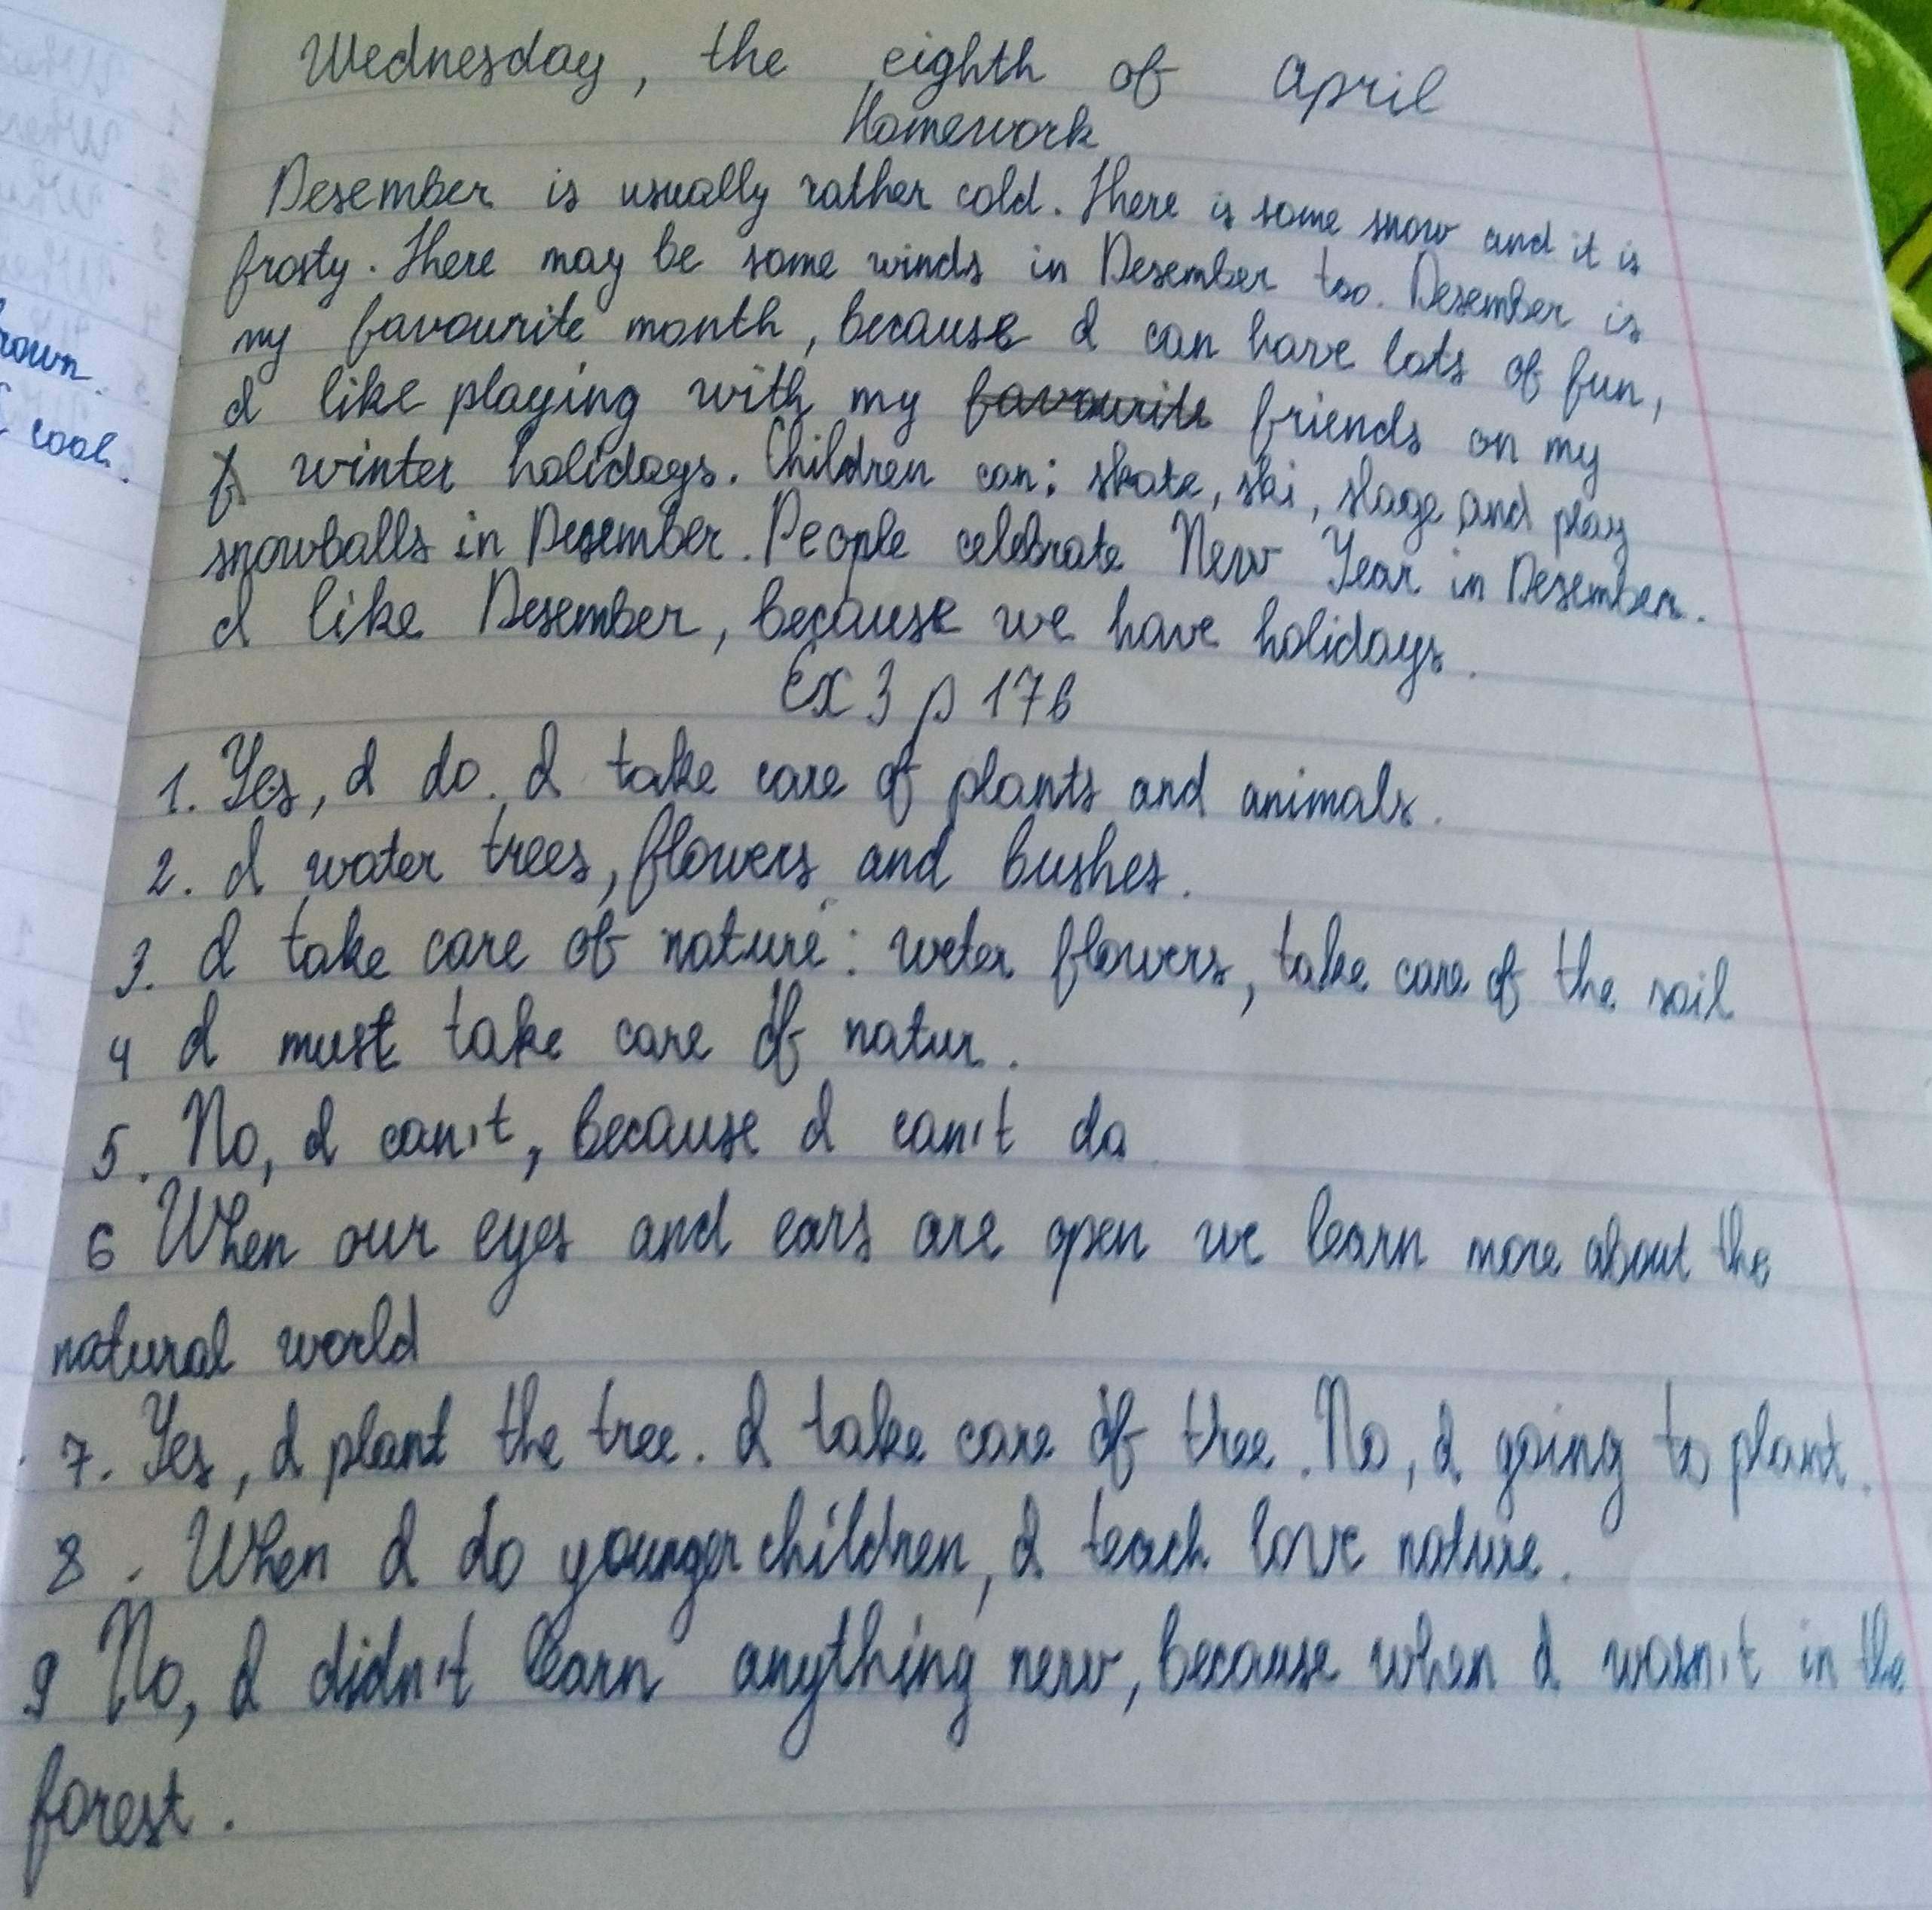 Wednesday, the eighth of April
Homework
Desember is usually rather cold. There is some snow and it is
frosty. There may be some winds in Desember too. Desember is
my favourite month, because I can have lots of fun,
I like playing with my favourite friends on my
winter holidays. Children can: skate, ski, slage and play
snowballs in Desember. People celebrate New Year in Desember.
I like Desember, because we have holidays.
Ex 3 p 176
1. Yes, I do. I take care of plants and animals.
2. I water trees, flowers and bushes.
3. I take care of nature: weter flowers, take care of the soil
4 I must take care of natur.
5. No, I can't, because I can't do
6 When our eyes and ears are open we learn more about the
natural world
7. Yes, I plant the tree. I take care of tree. No, I going to plant.
8. When I do younger children, I teach love nature.
9 No, I didn't learn anything new, because when I wasn't in the
forest.
rown.
cool.